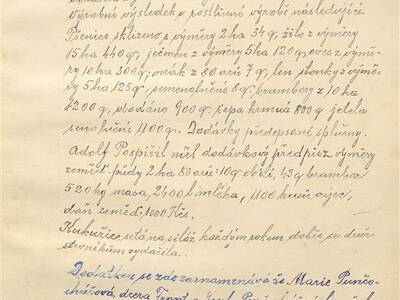 Výrobní výsledek v rostlinné výrobě následující.
Pšenice sklizeno s výměry 2 ha 34 q, žito z výměry
15 ha 440 q, ječmen z výměry 5 ha 120 q, oves z výmě-
ry 10 ha 300 q, ovsík z 80 arů 7 q, len stonky z výmě-
ry 5 ha 125 q, semenolničné 8 q, brambory z 10 ha
1200 q, prodáno 900 q. řepa krmná 800 q jetela
seno luční 1100 q. Dodávky předepsané splněny.
Adolf Pospíšil měl dodávkový předpis z výměry
zeměd. půdy 2 ha 80 arů: 10 q obilí, 43 q brambor
520 kg masa, 2400 l mléka, 1100 kusů vajec,
daň zeměd. 1000 Kčs.
Kukuřice setá na siláž každým rokem dobře se druž-
stevníkům vydařila.
Dodatkem se zde zaznamenává že Marie Punčo-
chářová, dcera